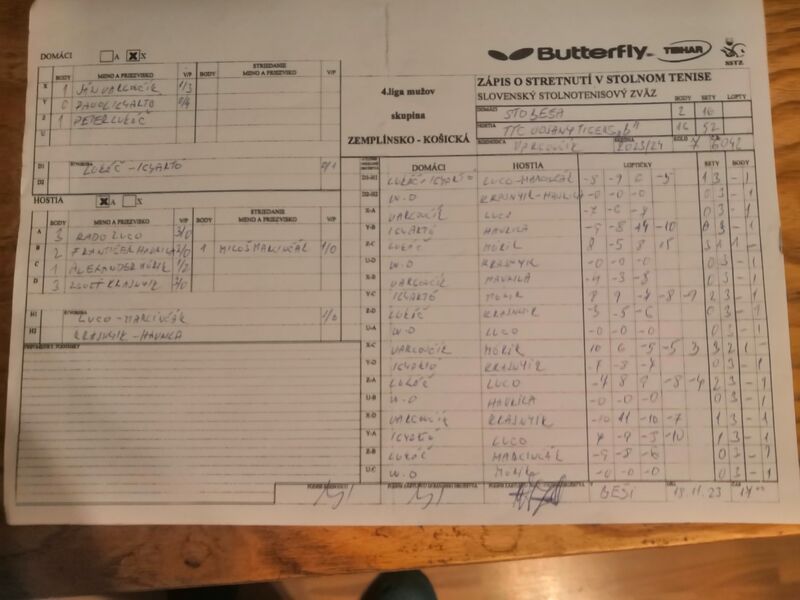 DOMÁCI A X X
BODY MENO A PRIEZVISKO V/P BODY STRIEDANIE MENO A PRIEZVISKO V/P
X 1 JÁN VARGOVČÍK 1/3
Y 0 PAVOL IGYARTÓ 0/4
Z 1 PETER LUKÁČ
U
D1 LUKÁČ - IGYARTÓ 0/1
D2
HOSTIA A X X
BODY MENO A PRIEZVISKO V/P BODY STRIEDANIE MENO A PRIEZVISKO V/P
A 3 RADO LUCO 3/0
B 2 FRANTIŠEK HAVRILA 2/0 1 MILOŠ MARCIVČÁK 1/0
C 1 ALEXANDER MÓRIK 1/2
D 3 ZSOLT KRASNYIK 3/0
H1 LUCO - MARCIVČÁK 1/0
H2 KRASNYIK - HAVRILA
Butterfly TIBHAR SSTZ
4.liga mužov
skupina
ZEMPLÍNSKO - KOŠICKÁ
ZÁPIS O STRETNUTÍ V STOLNOM TENISE
SLOVENSKÝ STOLNOTENISOVÝ ZVÄZ
DOMÁCI STO BEŠA BODY 2 SETY 16 LOPTY
HOSTIA TTC VOJANY TIGERS „B" 16 52
VARGOVČÍK 2023/24 KOLO 7 6042
DOMÁCI HOSTIA LOPTIČKY SETY BODY
D1-H1 LUKÁČ - IGYARTÓ LUCO - MARCIVČÁK 1 3 - 1
D2-H2 W.O KRASNYIK - HAVRILA -0 -0 -0 0 3 - 1
X-A VARGOVČÍK LUCO -7 -6 -8 0 3 - 1
Y-B IGYARTÓ HAVRILA -9 -8 14 -10 3 - 1
Z-C LUKÁČ MÓRIK 8 -5 8 15 3 1 1 -
U-D W.O KRASNYIK -0 -0 -0 0 3 - 1
X-B VARGOVČÍK HAVRILA -4 -3 -8 0 3 - 1
Y-C IGYARTÓ MÓRIK 8 9 -7 -8 -9 2 3 - 1
Z-D LUKÁČ KRASNYIK -3 -5 -6 0 3 - 1
U-A W.O LUCO -0 -0 -0 0 3 - 1
X-C VARGOVČÍK MÓRIK 10 6 -5 -5 3 3 2 1 -
Y-D IGYARTÓ KRASNYIK 0 3 - 1
Z-A LUKÁČ LUCO -4 8 9 -8 -4 2 3 - 1
U-B W.O HAVRILA -0 -0 -0 0 3 - 1
X-D VARGOVČÍK KRASNYIK -10 11 -10 -7 1 3 - 1
Y-A IGYARTÓ LUCO 7 -9 -3 -10 1 3 - 1
Z-B LUKÁČ MARCIVČÁK -9 -8 -6 0 3 - 1
U-C W.O MÓRIK -0 -0 -0 0 3 - 1
V BEŠI DŇA 18.11.23 ČAS 17 00